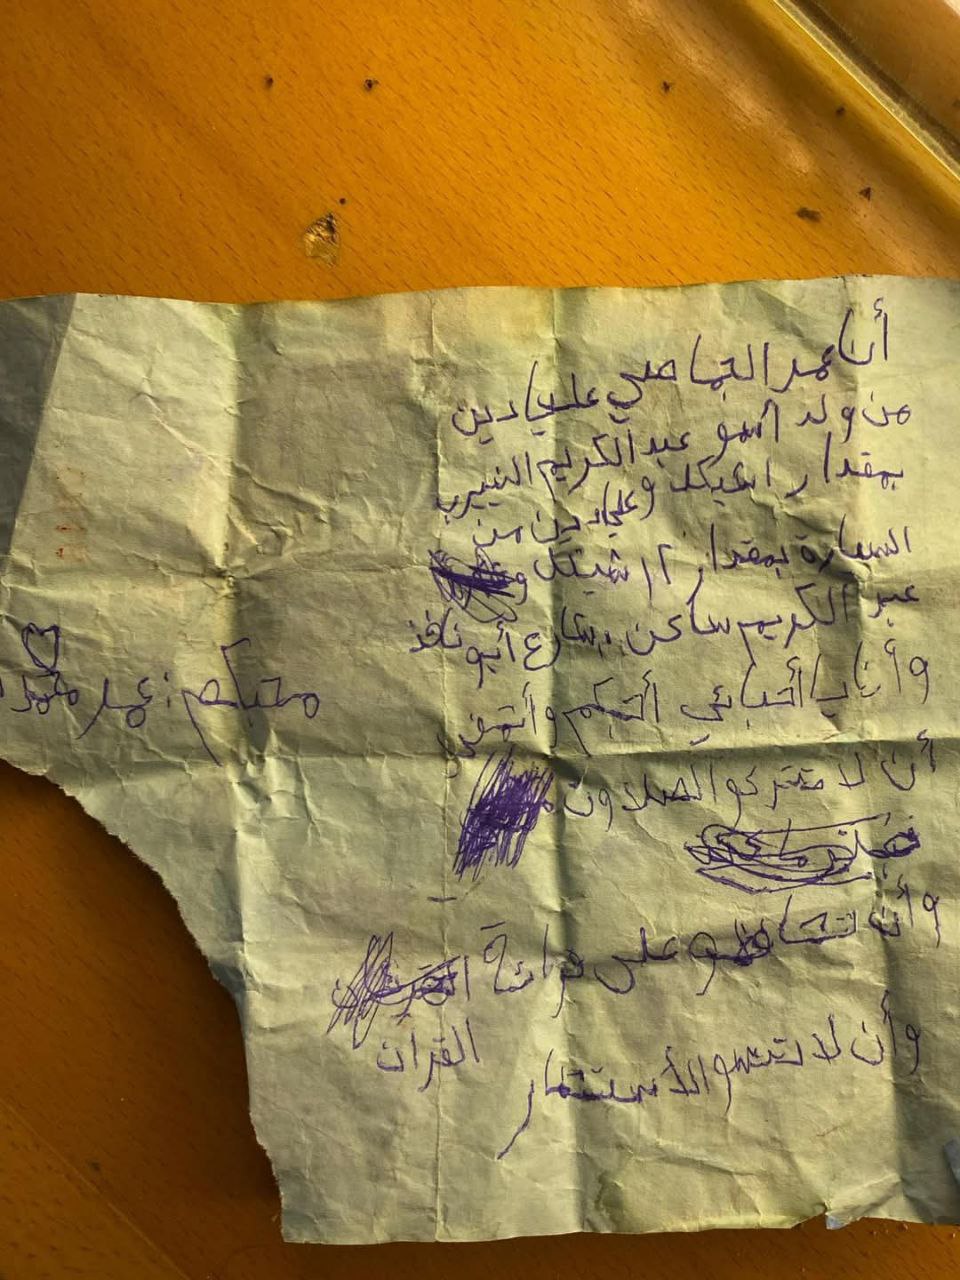 أنا عمر الجماصي عليا دين
من ولد اسمو عبد الكريم النيرب
بمقدار ١ شيكل وعليا دين من
السارة بمقدار ٢ شيكل و
عبد الكريم ساكن بشارع أبو نافذ
وأنا يا أحبائي أحبكم وأتمنى
أن لا تتركو الصلاوت
وأن تحافظو على قرائة
القران
وأن لا تنسو الأستغفار
محبكم: عمر محمد